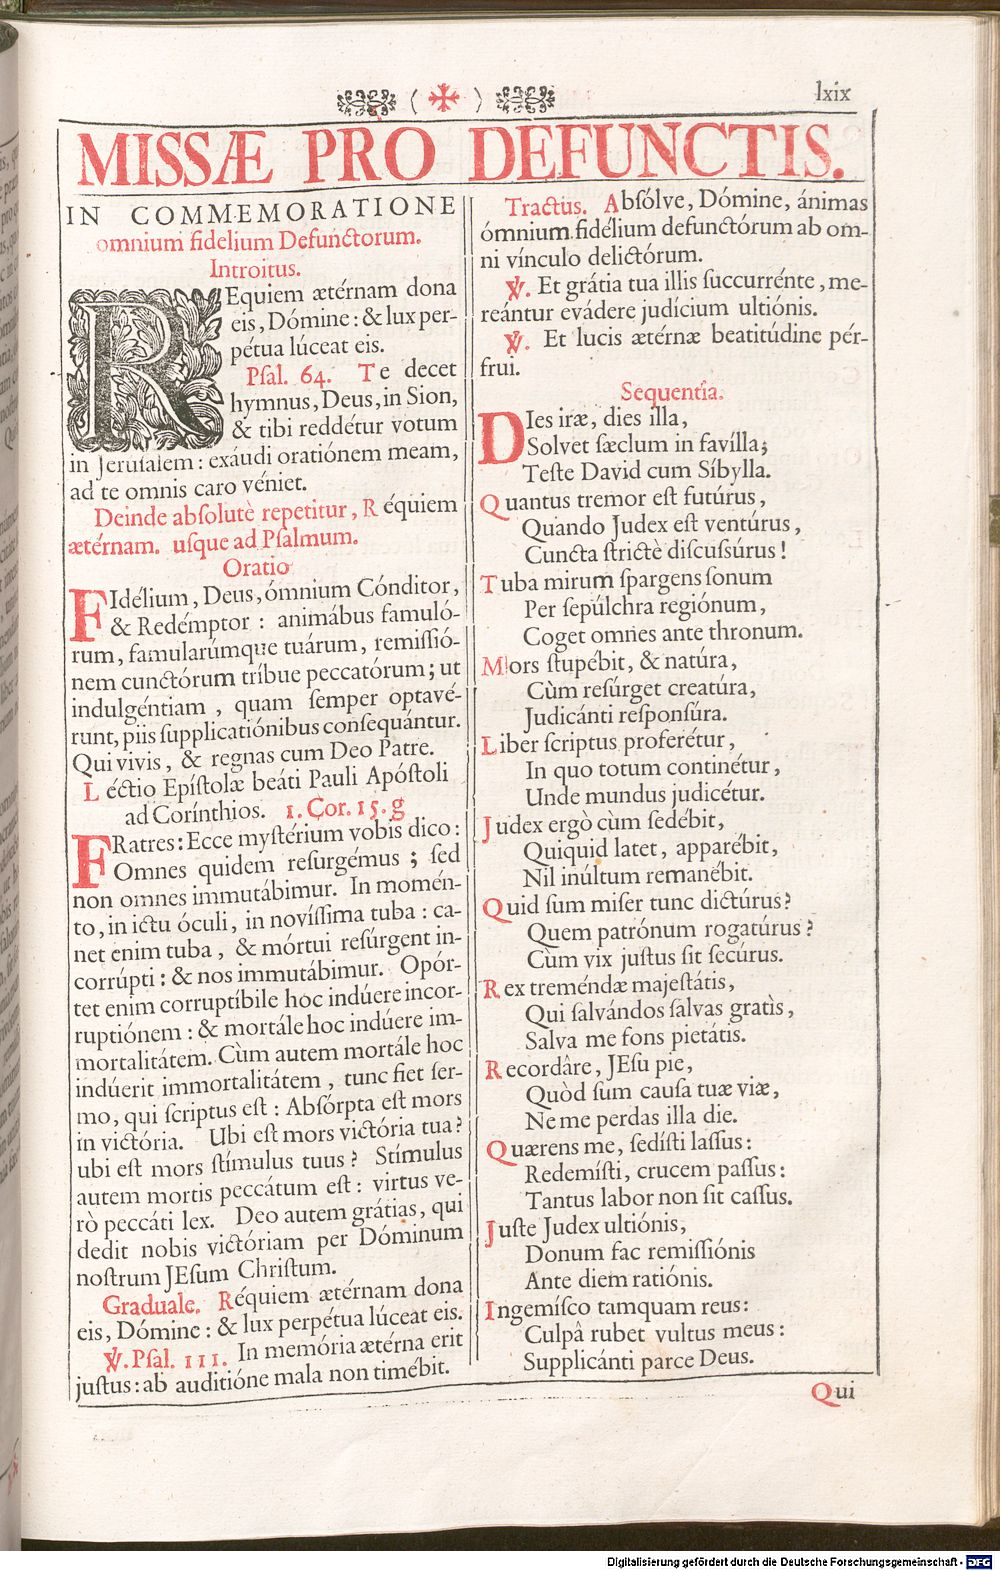 lxix
MISSÆ PRO DEFUNCTIS.
IN COMMEMORATIONE
omnium fidelium Defunctorum.
Introitus.
REquiem ætérnam dona
eis, Dómine: & lux per-
pétua lúceat eis.
Pſal. 64. Te decet
hymnus, Deus, in Sion,
& tibi reddétur votum
in Jeruſalem: exáudi oratiónem meam,
ad te omnis caro véniet.
Deinde abſolutè repetitur, Réquiem
ætérnam. uſque ad Pſalmum.
Oratio
FIdélium, Deus, ómnium Cónditor,
& Redémptor : animábus famuló-
rum, famularúmque tuárum, remiſſió-
nem cunctórum tríbue peccatórum; ut
indulgéntiam , quam ſemper optavé-
runt, piis ſupplicatiónibus conſequántur.
Qui vivis, & regnas cum Deo Patre.
Léctio Epíſtolæ beáti Pauli Apóſtoli
ad Corínthios. 1. Cor. 15. g
FRatres: Ecce myſtérium vobis dico:
Omnes quidem reſurgémus ; ſed
non omnes immutábimur. In momén-
to, in ictu óculi, in novíſſima tuba : ca-
net enim tuba , & mórtui reſúrgent in-
corrúpti : & nos immutábimur. Opór-
tet enim corruptíbile hoc indúere incor-
ruptiónem : & mortále hoc indúere im-
mortalitátem. Cùm autem mortále hoc
indúerit immortalitátem , tunc fiet ſer-
mo, qui ſcriptus eſt : Abſórpta eſt mors
in victória. Ubi eſt mors victória tua?
ubi eſt mors ſtímulus tuus? Stímulus
autem mortis peccátum eſt : virtus ve-
rò peccáti lex. Deo autem grátias, qui
dedit nobis victóriam per Dóminum
noſtrum JEſum Chriſtum.
Graduale. Réquiem ætérnam dona
eis, Dómine: & lux perpétua lúceat eis.
℣. Pſal. 111. In memória ætérna erit
juſtus: ab auditióne mala non timébit.
Tractus. Abſólve, Dómine, ánimas
ómnium fidélium defunctórum ab om-
ni vínculo delictórum.
℣. Et grátia tua illis ſuccurrénte, me-
reántur evádere judícium ultiónis.
℣. Et lucis ætérnæ beatitúdine pér-
frui.
Sequentia.
DIes iræ, dies illa,
Solvet ſæclum in favílla;
Teſte David cum Síbylla.
Quantus tremor eſt futúrus,
Quando Judex eſt ventúrus,
Cuncta ſtrictè diſcuſsúrus!
Tuba mirum ſpargens ſonum
Per ſepúlchra regiónum,
Coget omnes ante thronum.
Mors ſtupébit, & natúra,
Cùm reſúrget creatúra,
Judicánti reſponſúra.
Liber ſcriptus proferétur,
In quo totum continétur,
Unde mundus judicétur.
Judex ergò cùm ſedébit,
Quiquid latet, apparébit,
Nil inúltum remanébit.
Quid ſum miſer tunc dictúrus?
Quem patrónum rogatúrus?
Cùm vix juſtus ſit ſecúrus.
Rex treméndæ majeſtátis,
Qui ſalvándos ſalvas gratìs,
Salva me fons pietátis.
Recordâre, JEſu pie,
Quòd ſum cauſa tuæ viæ,
Ne me perdas illa die.
Quærens me, ſedíſti laſſus:
Redemíſti, crucem paſſus:
Tantus labor non ſit caſſus.
Juſte Judex ultiónis,
Donum fac remiſſiónis
Ante diem ratiónis.
Ingemíſco tamquam reus:
Culpâ rubet vultus meus:
Supplicánti parce Deus.
Qui
Digitalisierung gefördert durch die Deutsche Forschungsgemeinschaft - DFG